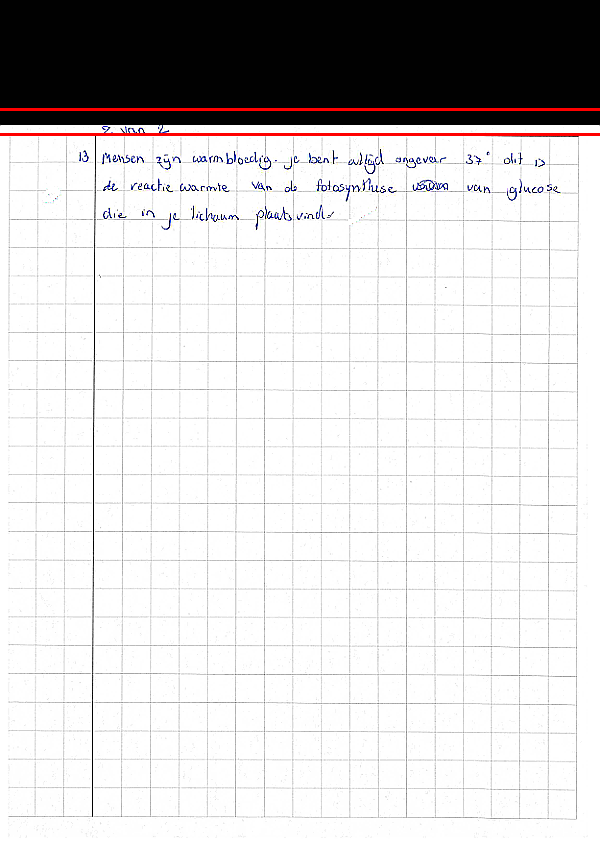 2 van 2
13 Mensen zijn warmbloedig. je bent altijd ongeveer 37° dit is
de reactiewarmte van de fotosynthese van glucose
die in je lichaam plaatsvind.